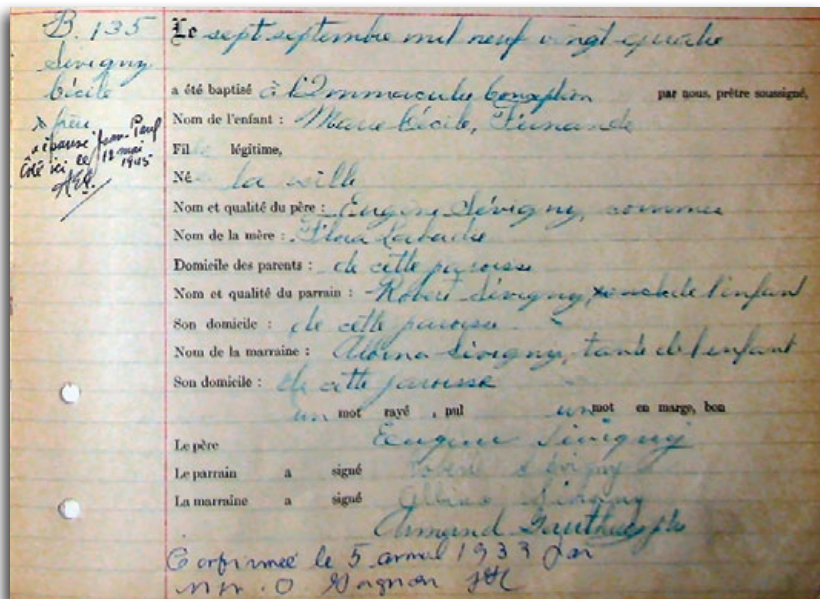 B. 135
Sévigny
Cécile
x frère
a épousé Jean-Paul
Côté ici le 12 mai
1945
Le sept septembre mil neuf vingt-quatre
a été baptisé à l'Immaculée Conception par nous, prêtre soussigné,
Nom de l'enfant : Marie Cécile, Fernande
Fille légitime,
Née la veille
Nom et qualité du père : Eugène Sévigny, commis
Nom de la mère : Flora Labadie
Domicile des parents : de cette paroisse
Nom et qualité du parrain : Robert Sévigny, x de l'enfant
Son domicile : de cette paroisse
Nom de la marraine : Albina Sévigny, tante de l'enfant
Son domicile : de cette paroisse
un mot rayé, nul un mot en marge, bon
Le père Eugène Sévigny
Le parrain a signé Robert Sévigny
La marraine a signé Albina Sévigny
Armand Gauthier ptre
Confirmée le 5 avril 1933 par
O Gagnon